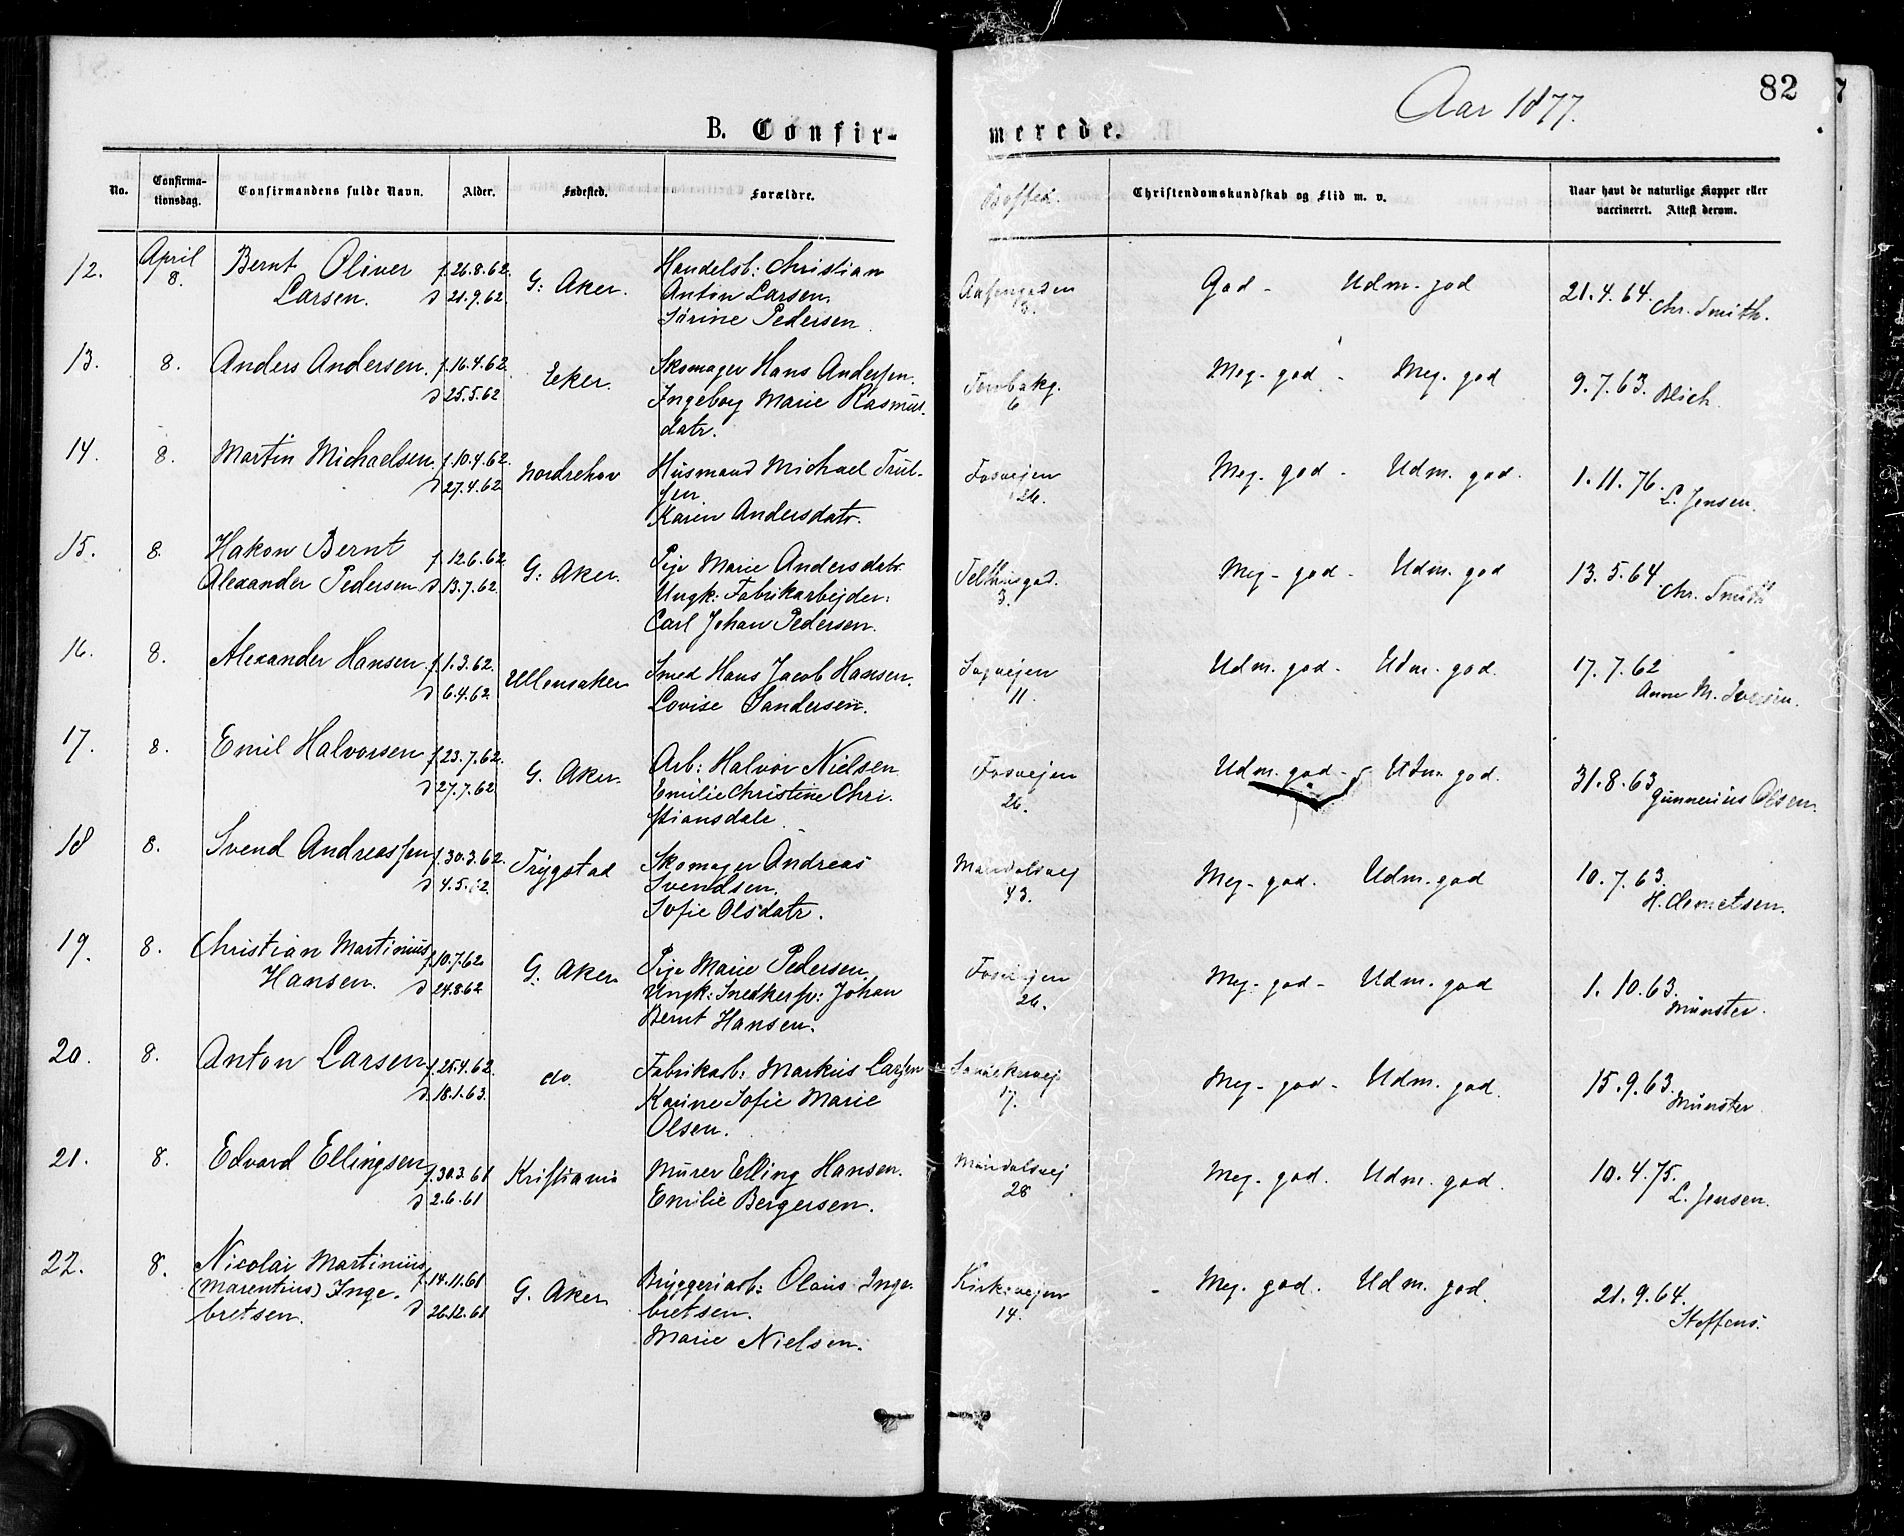 82
Aar 1877.
B. Confir-
merede.
No.
Confirma-
tionsdag.
Confirmandens fulde Navn.
Alder.
Fødested.
Forældre.
Bosted.
Christendomskundskab og Flid m. v.
Naar havt de naturlige Kopper eller
vaccineret. Attest derom.
12.
April
8.
Bernt Oliver
Larsen.
f. 26.8.62.
d 21.9.62.
G: Aker.
Handelsb: Christian
Anton Larsen.
Sørine Pedersen.
3.
God - Udm. god
21.4.64. Chr. Smith.
13.
8.
Anders Andersen.
f. 16.4.62.
d 25.5.62
Eker.
Skomager Hans Andersen.
Ingeborg Marie Rasmus-
datr.
6.
Meg. god - Meg. god
9.7.63. Blich.
14.
8.
Martin Michaelsen.
f. 10.4.62.
d 27.4.62
Nordrehov
Husmand Michael Trul-
sen.
Karen Andersdatr.
Fosvejen
26.
Meg. god - Udm. god.
1.11.76. L. Jensen.
15.
8.
Hakon Bernt
Alexander Pedersen
f. 12.6.62.
d 13.7.62
G: Aker.
Pige Marie Andersdatr.
Ungk: Fabrikarbejder:
Carl Johan Pedersen.
3.
Meg - god - Udm. god
13.5.64 Chr. Smith
16.
8.
Alexander Hansen
f. 1.3.62.
d 6.4.62
Ullensaker
Smed Hans Jacob Hansen.
Lovise Sandersen.
Sagvejen
11.
Udm. god - Udm. god.
17.7.62
Anne M. Iversen.
17.
8.
Emil Halvorsen
f. 23.7.62.
d 27.7.62
G. Aker.
Arb: Halvor Nielsen
Emilie Christine Chri-
stiansdatr.
Fosvejen
26.
Udm. god - Udm god.
31.8.63 Gunnerius Olsen.
18
8.
Svend Andreassen
f. 30.3.62.
d 4.5.62.
Trygstad
Skomager Andreas
Svendsen.
Sofie Olsdatr.
Mandalsvej
43.
Meg - god. Udm. god
10.7.63.
H. Clemetsen.
19.
8.
Christian Martinius
Hansen.
f. 10.7.62
d 24.8.62
G. Aker
Pige Marie Pedersen.
Ungk: Snedkersv: Johan
Bernt Hansen.
Fosvejen
26.
Meg - god - Udm. god
1.10.63.
Münster.
20.
8.
Anton Larsen
f. 25.4.62.
d. 18.1.63.
do.
Fabrikarb: Markus Larsen
Karine Sofie Marie
Olsen.
17.
Meg - god - Udm. god.
15.9.63.
Münster
21.
8.
Edvard Ellingsen
f. 30.3.61
d 2.6.61
Kristiania
Murer Elling Hansen.
Emilie Bergersen.
Mandalsvej
28
Meg. god. Udm. god.
10.4.75.
L. Jensen.
22.
8.
Nicolai Martinius
(Marentius) Inge-
bretsen.
f. 14.11.61
d 26.12.61
G. Aker
Bryggeriarb: Olaus Inge-
bretsen.
Marie Nielsen.
Kirkevejen
14.
Meg. god. Udm. god.
21.9.64.
Steffens.